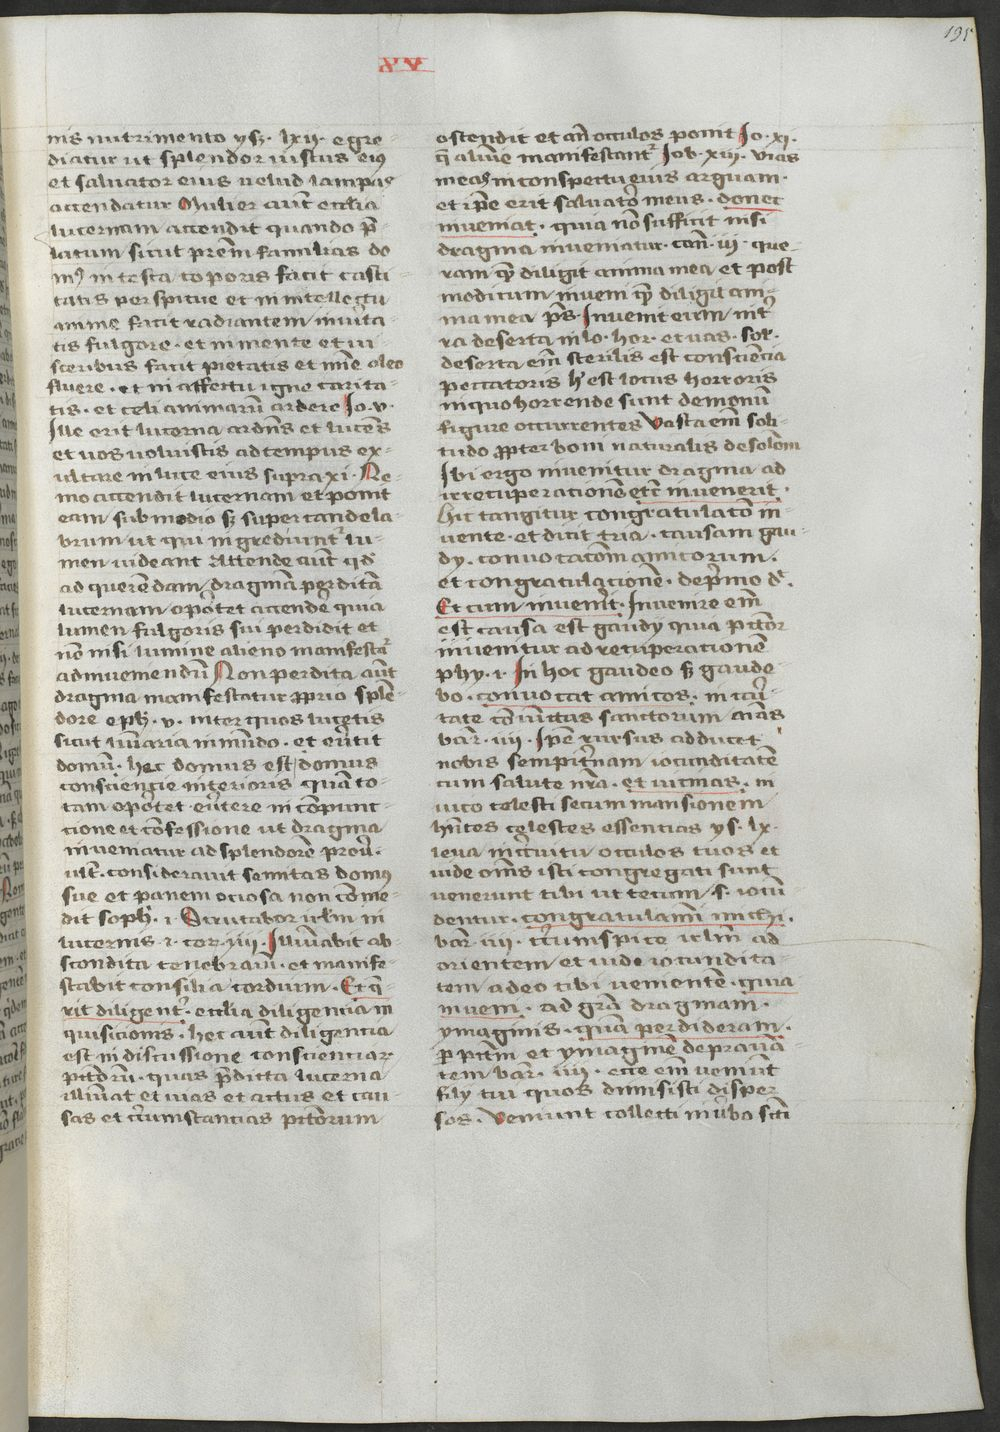 195
XV
nis nutrimento ys. lxii. egre-
diatur ut splendor iustus eiꝰ
et saluator eius uelud lampas
accendatur Mulier aut̄ ecclīa
lucernam accendit quando p̄-
latum sicut prēm familias do
mꝰ in testa coporis facit casti-
tatis perspicue et in intellectu
anime facit radiantem in uīta-
tis fulgore · et in mente et ui
sceribus facit pietatis et mīe oleo
fluere · et in affectu igne carita-
tis · et celi animarū ardere Io. v.
Ille erit lucerna ardēs et lucēs
et uos uoluistis ad tempus ex-
ultare in luce eius supra xi · Ne-
mo accendit lucernam et ponit
eam sub modio sꝫ super candela-
brum ut qui ingrediuntr̄ lu-
men uideant Attende aut̄ qd̄
ad querendam dragmā perditā
lucernam opōtet accendē quia
lumen fulgoris sui perdidit et
nō nisi lumine alieno manifestat̄
ad inueniendū Non perdita aut̄
dragma manifestatur ꝓprio splē-
dore eph̄. v. inter quos lucetis
sicut luīaria in mūdo · et euertit
domū · hec domus est domus
consciencie interioris quā to-
tam opōtet euertere in cōpunc-
tione et cōfessione ut dragma
inueniatur ad splendorē prou̇.
ult̄. considerauit semitas domꝰ
sue et panem ociosa non come-
dit soph̄. i. Scrutabor irlm̄ in
lucernis i. cor. iiii. Illuīabit ab-
scondita tenebrarū · et manife-
stabit consilia cordium · Et q̄-
rit diligent̄ · ecclīa diligencia in
quisicionis · hec aut̄ diligencia
est in discussione conscienciar
pctōrū · quas p̄dicta lucerna
illuīat et uias et actus et cau-
sas et circumstancias pctōrum
ostendit et an̄ occulos ponit Io. xi.
q̄ aliue manifestantr̄ Iob. xiii. vias
meas in conspectu eius arguam ·
et ip̄e erit saluator meus · donec
inueniat · quia nō sufficit nisi
dragma inueniatur · can̄. iii. que-
ram quē diligit anima mea et post
modicum inueni quē diligit ani-
ma mea p̄s. Inuenit eum in t̄
ra deserta in lo. hor. et uas. sol.
deserta em̄ sterilis est consciēcia
peccatoris h̄ est locus horroris
in quo horrende sunt demonū
figure occurrentes Vasta em̄ soli-
tudo ꝓpter boni naturalis desolom̄
Ibi ergo inuenitur dragma ad
irrecuperacionē et c̄ inuenerit ·
hic tangitur congratulacō in-
uente · et dicit tria · causam gau
dy · conuocacōem amicorum ·
et congratulacionē · de p̄mo dr̄.
Et cum inuenīt · Inuenire em̄
est causa est gaudy quia pctor
inuenitur ad recuperacionē
phy. i. In hoc gaudeo sꝫ gaude-
bo · conuocat amicos · in cari-
tate cōiunctas sanctorum aīas
bar̄. iiii. Ip̄e rursus adducet
nobis sempiternam iocunditatē
cum salute nr̄a · et uicinas · in
uico celesti secum mansionem
hn̄tes celestes essencias ys. lx.
leua in circuitu occulos tuos et
uide om̄s isti congregati sunt
venerunt tibi ut tecum s. iocū
dentur · congratulamī michi ·
bar̄. iiii. circumspice irlm̄ ad
orientem et uide iocundita-
tem a deo tibi uenientē · quia
inueni · ad grā̄ dragmam ·
ymaginis · quā perdideram ·
p̄ pctm̄ et ymaginē deprauā-
tem bar̄. iiii. ecce em̄ ueniūt
fily tui quos dimisisti disper
sos · Veniunt collecti in u̇bo sc̄ti